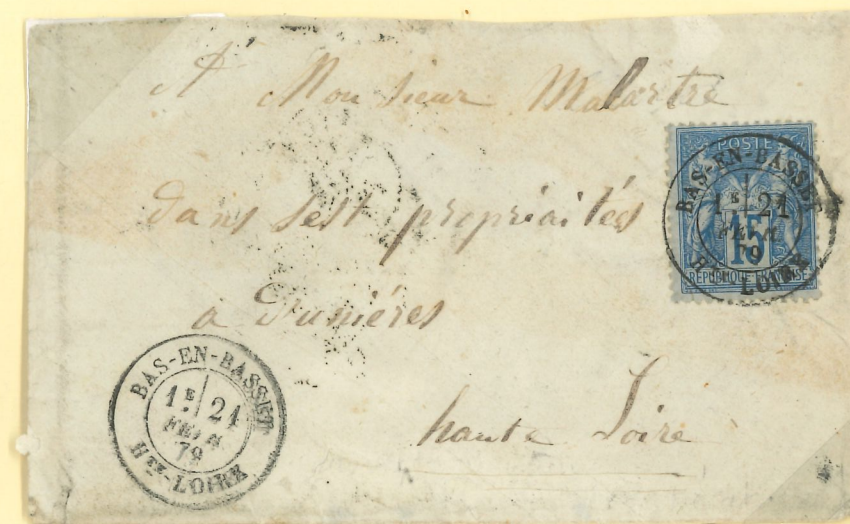 A Monsieur Malartre
dans sest propriaités
a Dunières
haute Loire
POSTE
15
RÉPUBLIQUE FRANÇAISE
BAS-EN-BASSET
1E 21
79
LOIRE
BAS-EN-BASSET
1E 21
FEVR
79
HTE-LOIRE